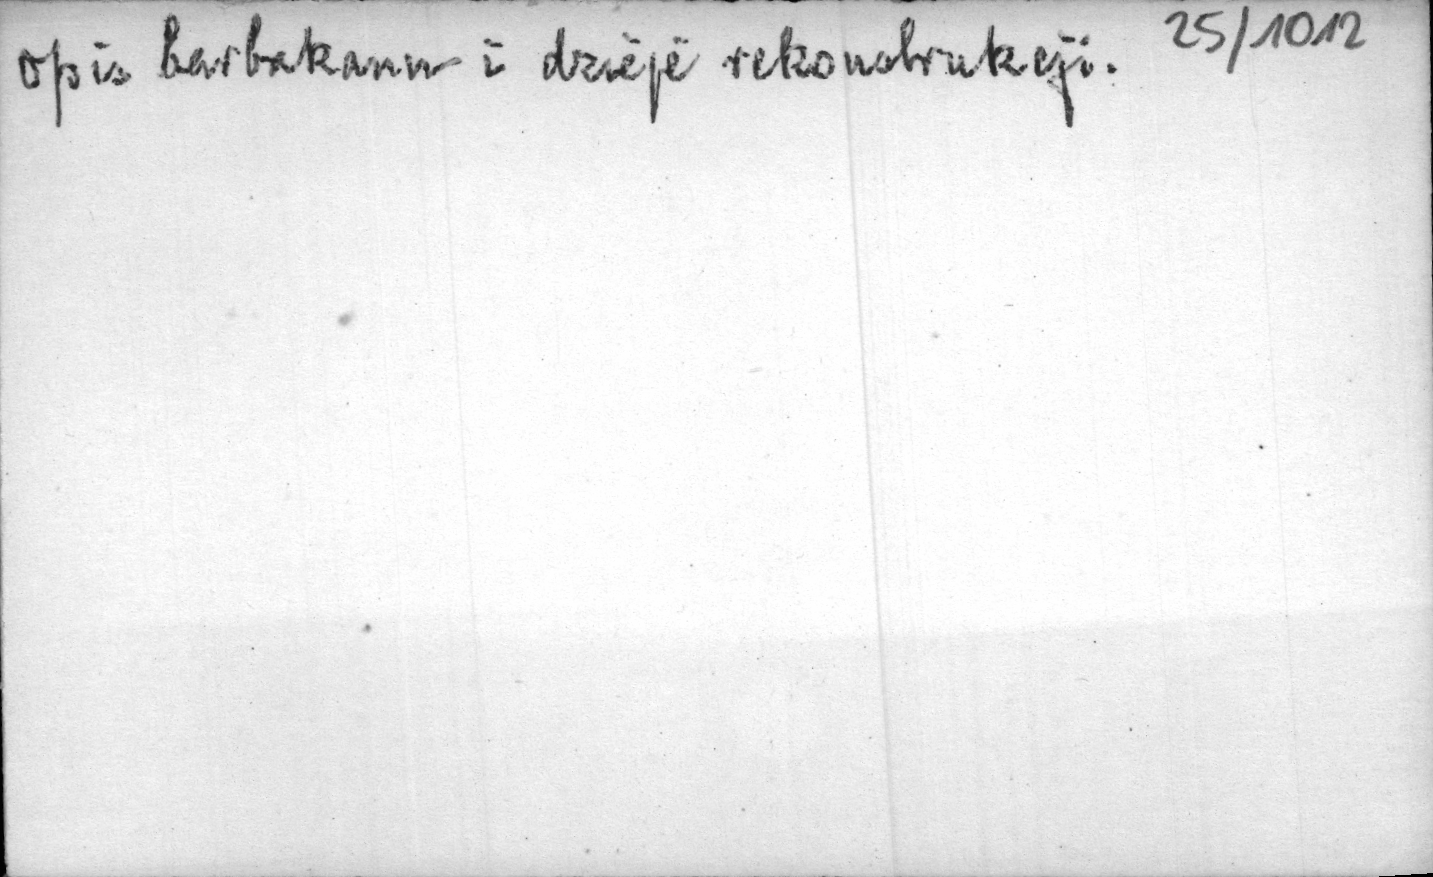 opis barbakanu i dzieje rekonstrukcji. 25/1012